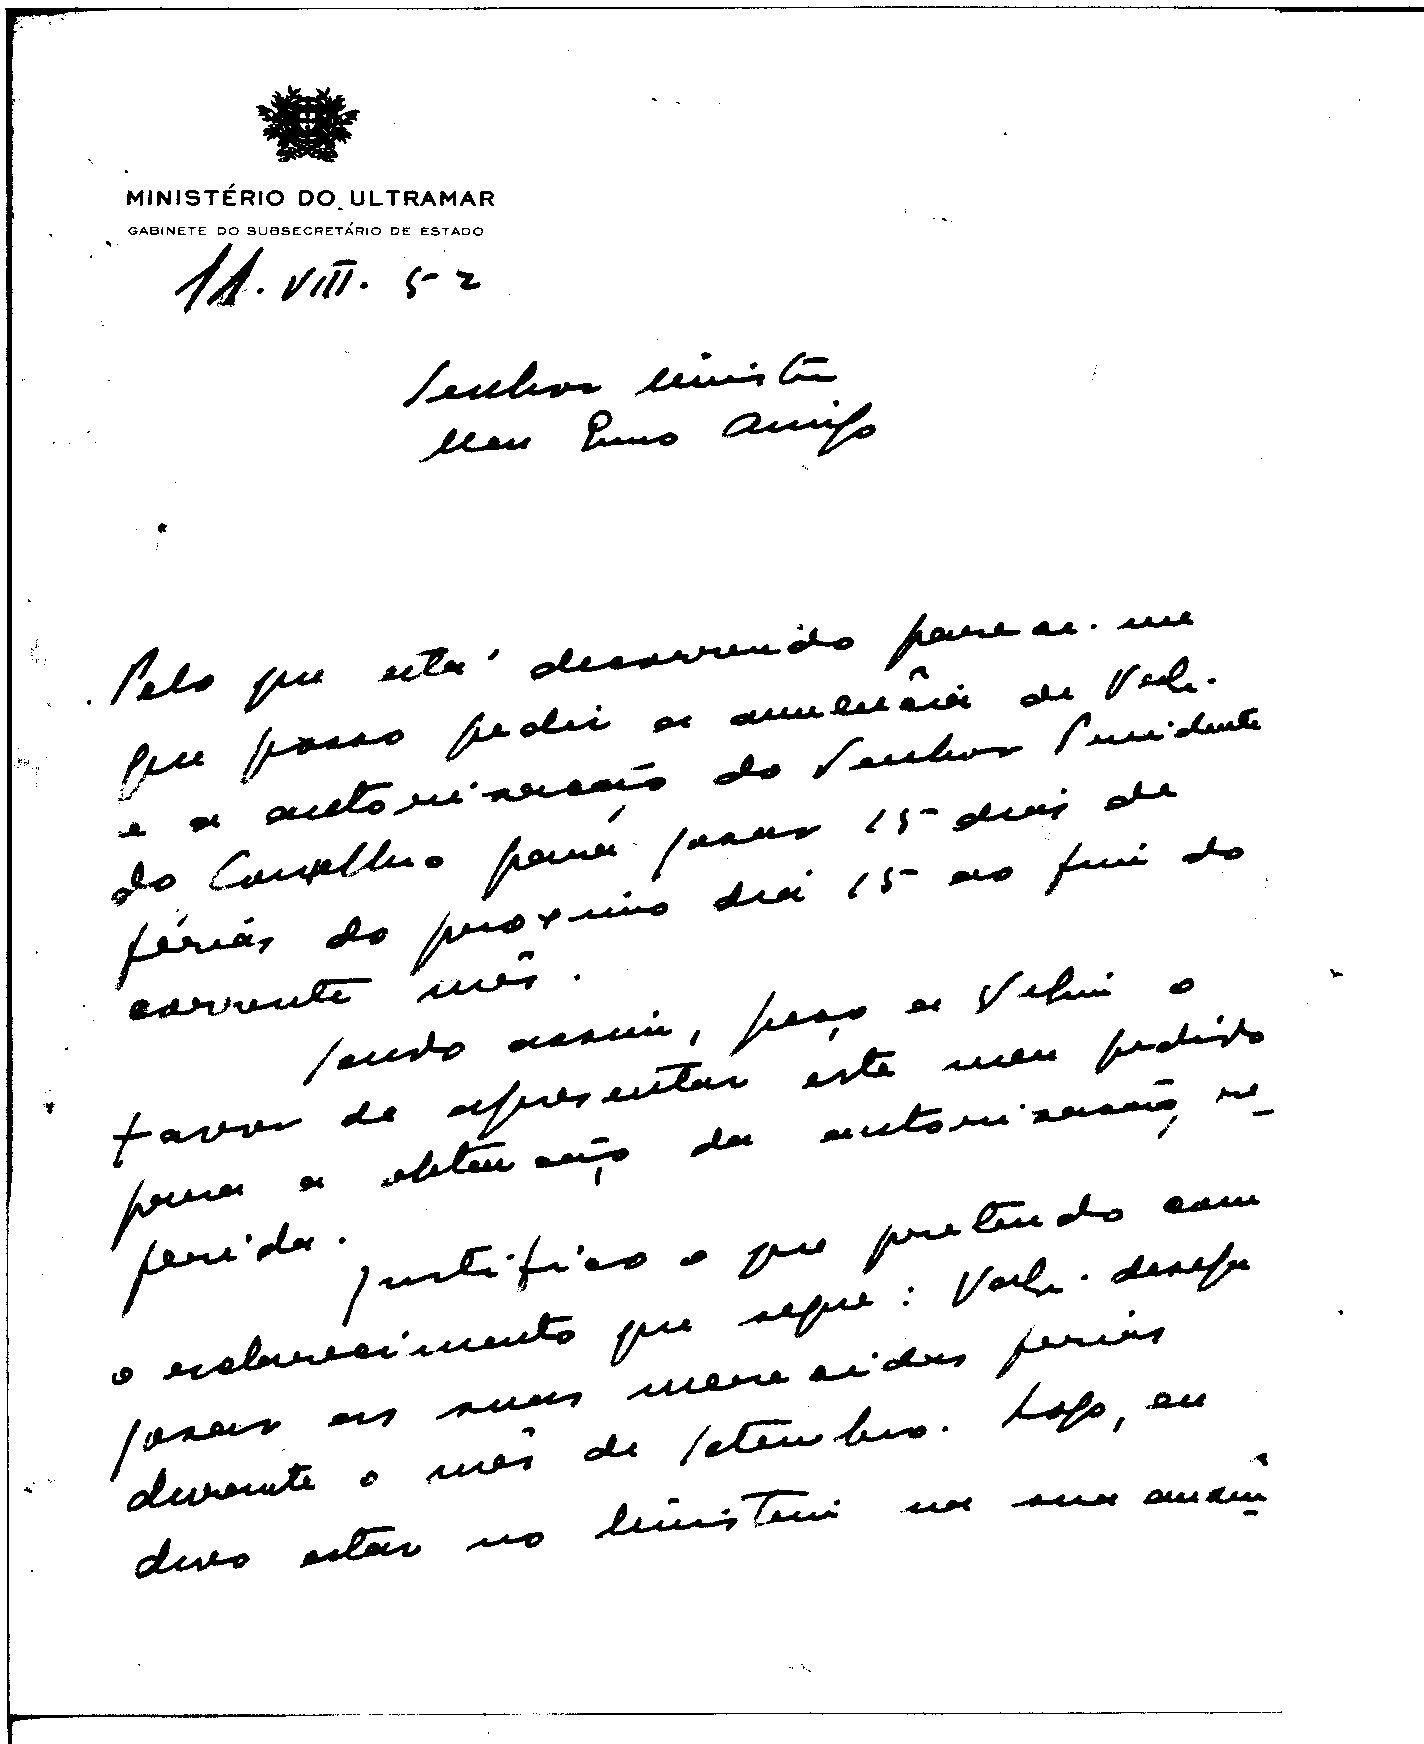 MINISTÉRIO DO ULTRAMAR
GABINETE DO SUBSECRETÁRIO DE ESTADO
11. VIII. 52
Senhor Ministro
Meu Exmo Amigo
Pelo que está decorrendo parece-me
que posso pedir a anuência de V.
e a autorização do Senhor Presidente
do Conselho para gosar 15 dias de
férias do proximo dia 15 ao fim do
corrente mês.
Sendo assim, peço a o
favor de apresentar este meu pedido
para a obtenção da autorização re-
ferida.
Justifico o que pretendo com
o esclarecimento que segue: deseja
gosar as suas merecidas ferias
durante o mês de Setembro. Logo, eu
devo estar no Ministerio na sua ausên-